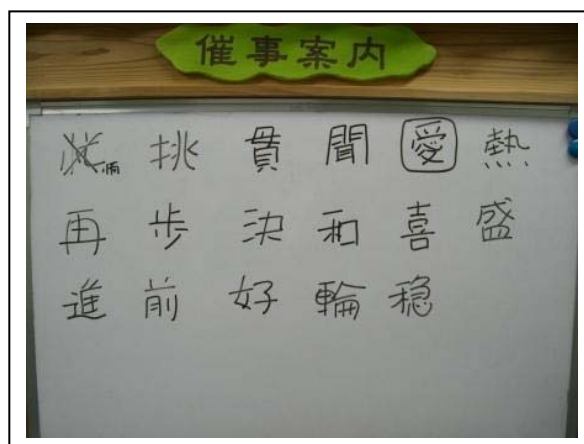 催事案内
挑 貫 聞 愛 熱
再 歩 決 和 喜 盛
進 前 好 輪 穏